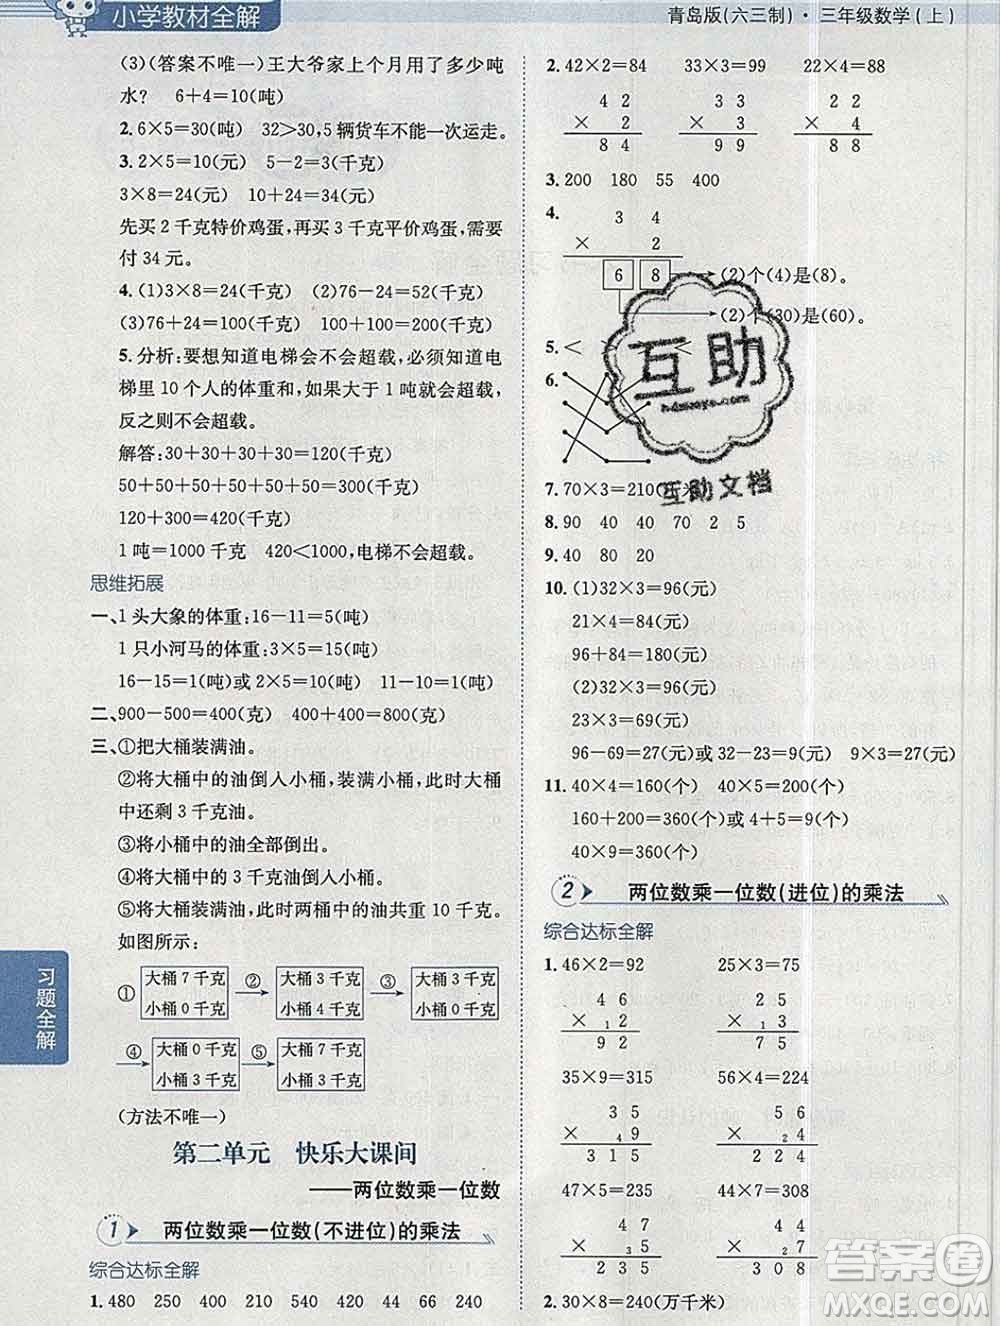 小学教材全解
青岛版(六三制)·三年级数学(上)
(3)(答案不唯一)王大爷家上个月用了多少吨
水? 6+4=10(吨)
2.6×5=30(吨) 32>30,5辆货车不能一次运走。
3.2×5=10(元) 5-2=3(千克)
3×8=24(元) 10+24=34(元)
先买2千克特价鸡蛋,再买3千克平价鸡蛋,需要
付34元。
4.(1)3×8=24(千克) (2)76-24=52(千克)
(3)76+24=100(千克) 100×3=300(千克)
5.分析:要想知道电梯会不会超载,必须知道电
梯里10个人的体重和,如果大于1吨就会超载,
反之则不会超载。
解答:30+30+30+30=120(千克)
50+50+50+50+50+50=300(千克)
120+300=420(千克)
1吨=1000千克 420<1000,电梯不会超载。
思维拓展
一、1头大象的体重:16-11=5(吨)
1只小河马的体重:3×5=15(吨)
16-15=1(吨)或2×5=10(吨) 11-10=1(吨)
二、900-500=400(克) 400+400=800(克)
三、①把大桶装满油。
②将大桶中的油倒入小桶,装满小桶,此时大桶
中还剩3千克油。
③将小桶中的油全部倒出。
④将大桶中的3千克油倒入小桶。
⑤将大桶装满油,此时两桶的油共重10千克。
如图所示:
① 大桶7千克 小桶0千克 ② 大桶3千克 小桶4千克 ③ 大桶3千克 小桶0千克
④ 大桶0千克 小桶3千克 ⑤ 大桶7千克 小桶3千克
(方法不唯一)
第二单元 快乐大课间
——两位数乘一位数
1 两位数乘一位数(不进位)的乘法
综合达标全解
1.480 250 400 210 240 44 66 240
习题全解
2.42×2=84 33×3=99 22×4=88
4 2 3 3 2 2
× 2 × 3 × 4
8 4 9 9 8 8
3.200 180 55 400
4. 3 4
× 2
6 8 (2)个(4)是(8)。
(2)个(30)是(60)。
5.< <
6.
7.70×3=210(千米)
8.90 40 40 70 2 5
9.40 80 20
10.(1)32×3=96(元)
21×4=84(元)
96+84=180(元)
(2)32×3=96(元)
23×3=69(元)
96-69=27(元)或32-23=9(元) 9×3=27(元)
11.40×4=160(个) 40×5=200(个)
160+200=360(个)或4+5=9(个)
40×9=360(个)
2 两位数乘一位数(进位)的乘法
综合达标全解
1.46×2=92 25×3=75
4 6 2 5
× 1 2 × 1 3
9 2 7 5
35×9=315 56×4=224
3 5 5 6
× 4 9 × 2 4
3 1 5 2 2 4
47×5=235 44×7=308
4 7 4 4
× 3 5 × 2 7
2 3 5 3 0 8
2.30×8=240(万千米)
互助
互助文档
答案圈
MXQE.COM